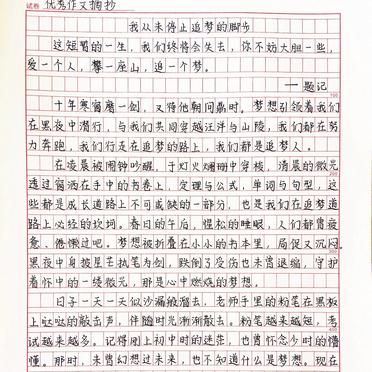 试卷 优秀作文摘抄
我从未停止追梦的脚步
这短暂的一生，我们终将会失去，你不妨大胆一些，
爱一个人，攀一座山，追一个梦。
——题记
十年寒窗磨一剑，又得他朝问鼎时。梦想引领着我们
在黑夜中潜行，与我们共同穿越汪洋与山陵，我们都在努
力奔跑，我们行走在追梦的路上，我们都是追梦人。
在凌晨被闹钟吵醒，于灯火阑珊中穿梭，清晨的微光
透过窗洒在手中的书卷上，定理与公式，单词与句型，这
些都是成长道路上不可或缺的一部分，也是我们在追梦道
路上必经的坎坷。春日的午后，惺忪的睡眼，人们都曾疲
惫、倦懒过吧。梦想被折叠在小小的书本里，局促又沉闷。
黑夜中身披星芒执笔为剑，跌倒了受伤也未曾退缩，守护
着怀中的一缕微光，那是心中燃烧的梦想。
日子一天一天似沙漏般溜去，老师手里的粉笔在黑板
上哒哒的敲击声，伴随时光渐渐散去。粉笔越来越短，考
试越来越多。记得刚上初中时的迷茫，也曾怀念少时的懵
懂。那时，未曾幻想过未来，也不知道什么是梦想。现在